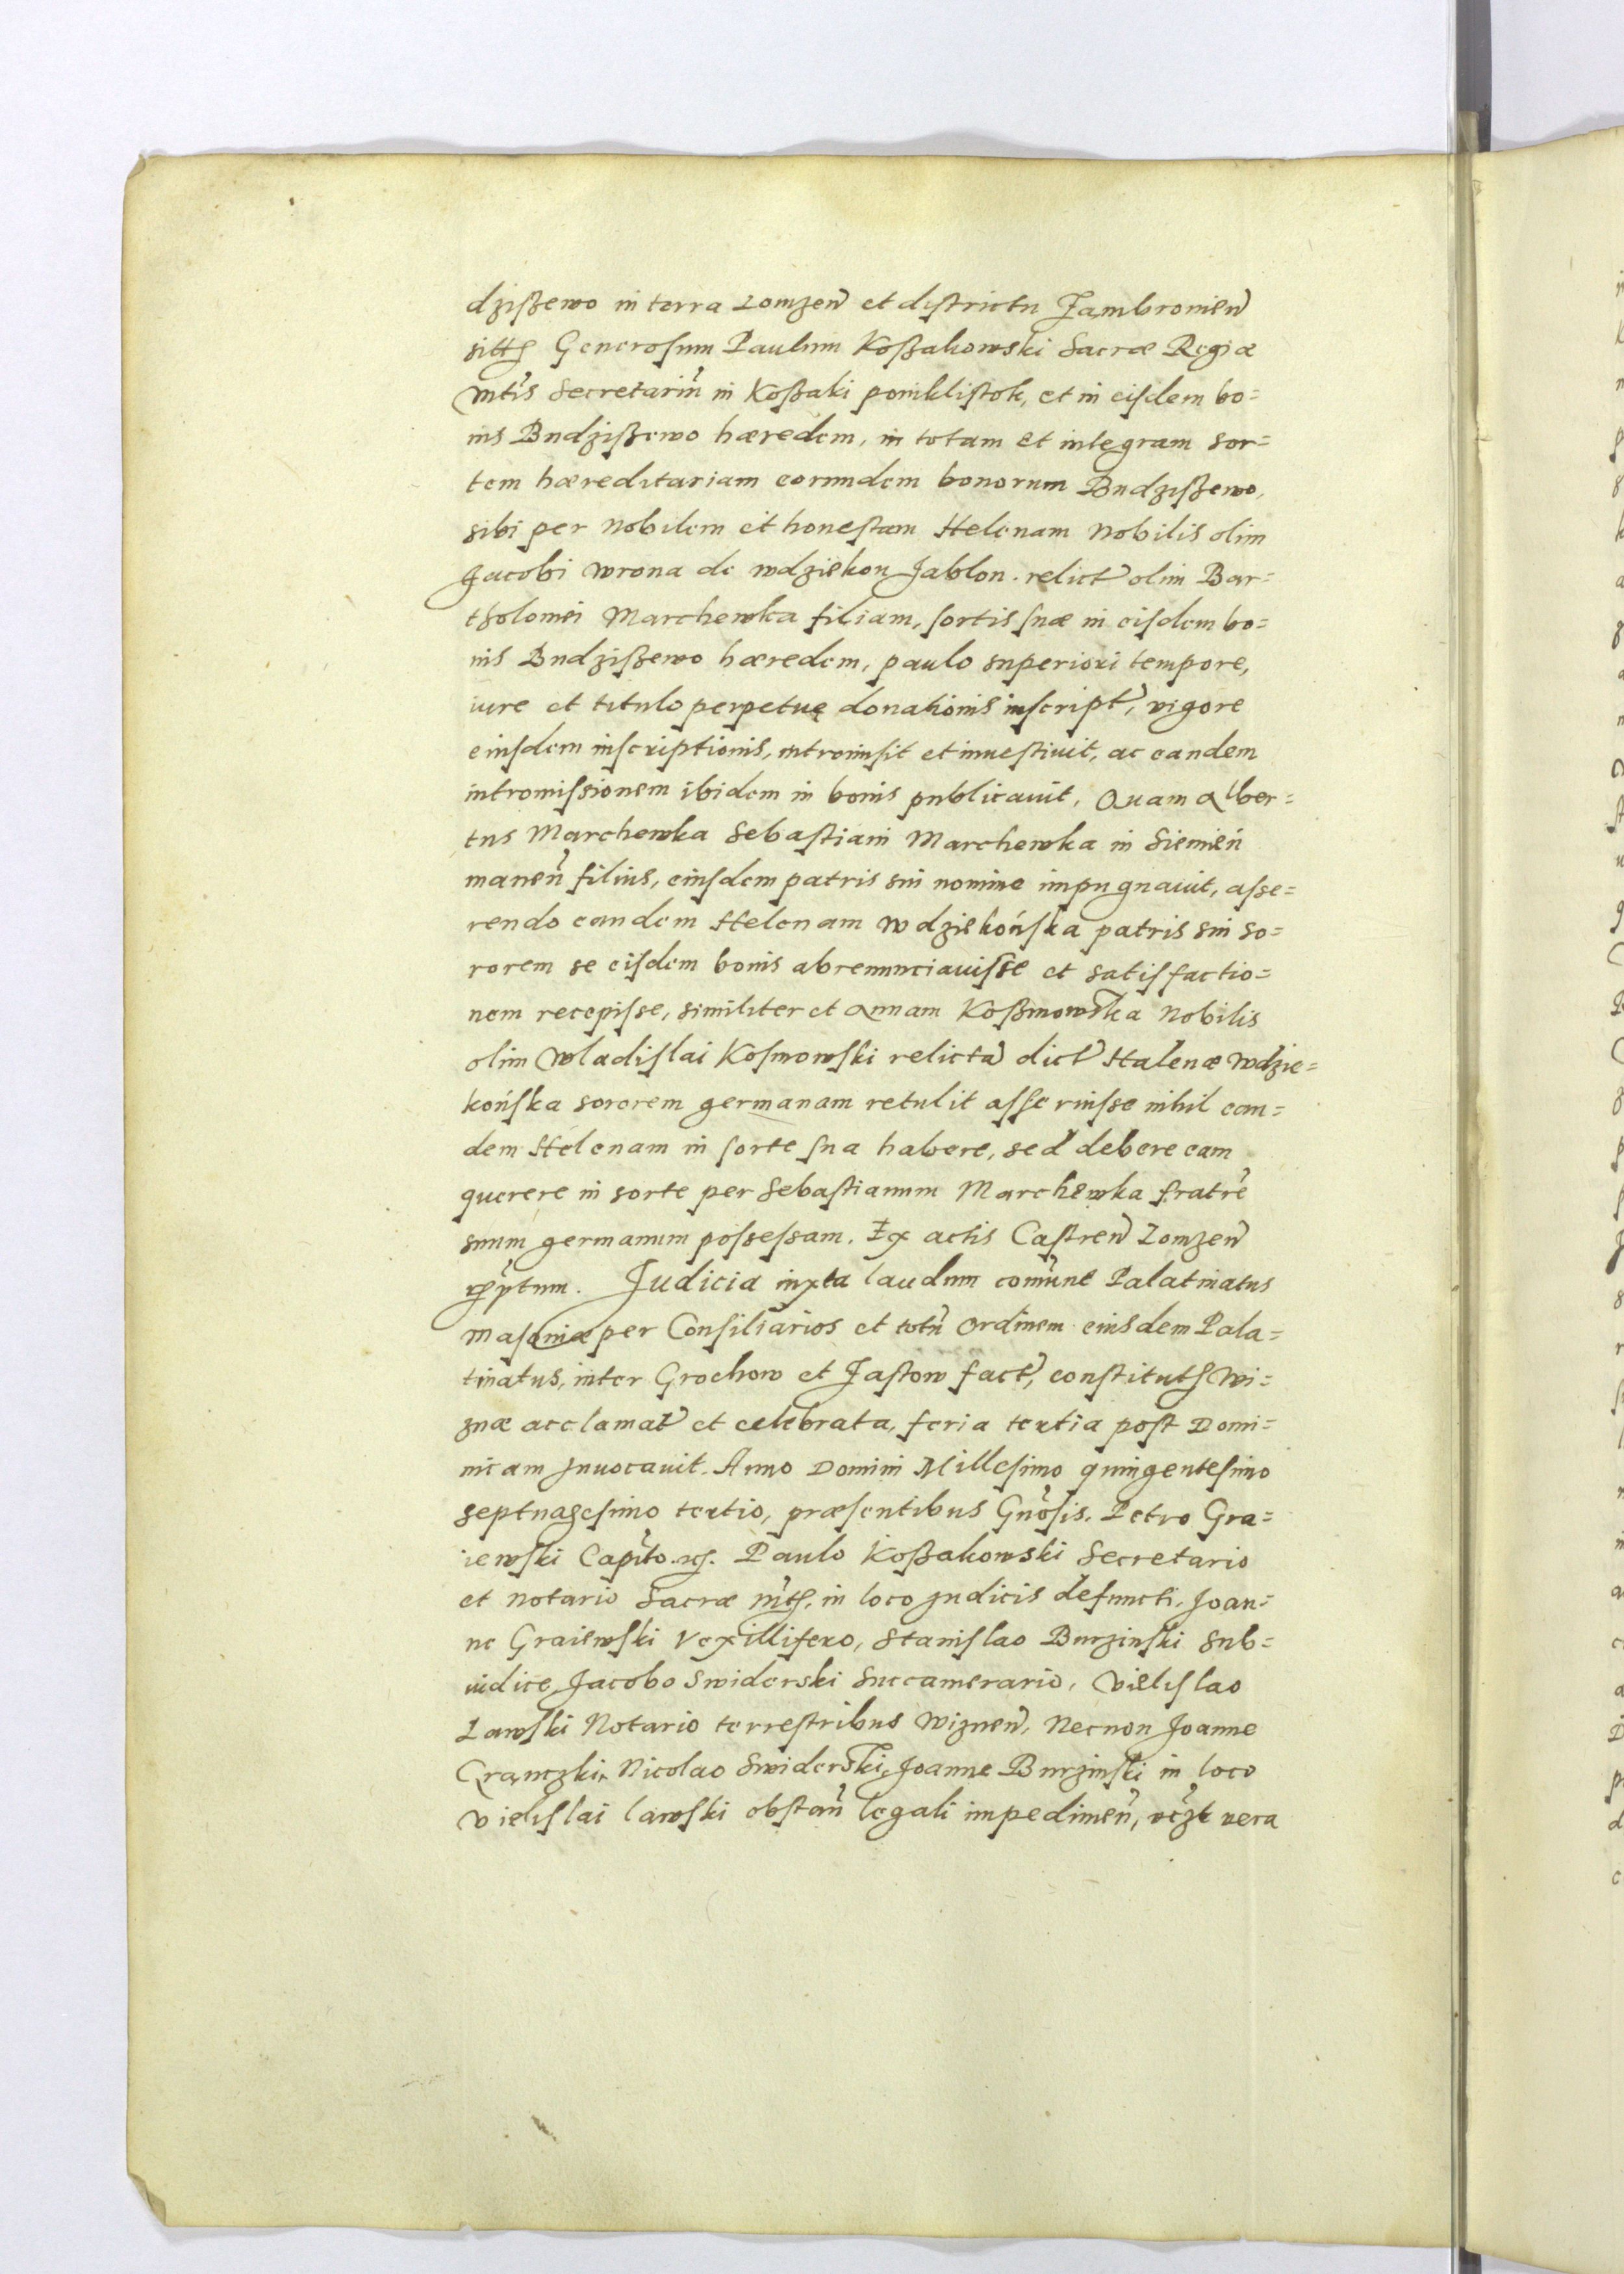 dzißewo in terra Lomzen̄ et districtu Zambromien̄
Generosum Paulum Koßakowski Sacræ Regiæ
Mtis Secretariū in Koßaki poniklistok, et in eisdem bo=
nis Budzißewo hæredem, in totam et integram sor=
tem hæreditariam eorundem bonorum Budzißewo,
sibi per Nobilem et honestam Helenam Nobilis olim
Jacobi Wrona de Wdziekon Jablon. relict olim Bar=
tholomei Marchewka filiam, sortis suæ in eisdem bo=
nis Budzißewo hæredem, paulo superiori tempore,
iure et titulo perpetuę donationis inscript, vigore
eiusdem inscriptionis, intromisit et inuestiuit, ac eandem
intromissionem ibidem in bonis publicauit, Quam Alber=
tus Marchewka Sebastiani Marchewka in Siemień
manen̄ filius, eiusdem patris sui nomine impugnauit, asse=
rendo eandem Helenam Wdziekońska patris sui so=
rorem se eisdem bonis abrenunciauisse et satisfactio=
nem recepisse, similiter et Annam Koßmowska Nobilis
olim Wladislai Kosmowski relictā dict Halenæ Wdzie=
końska sororem germanam retulit asseruisse nihil ean=
dem Helenam in sorte sua habere, sed debere eam
querere in sorte per Sebastianum Marchewka fratrē
suum germanum possessam. Ex actis Castren̄ Lomzen̄
Judicia iuxta laudum comūne Palatinatus
Masouiæ per Consiliarios et totū ordinem eiusdem Pala=
tinatus, inter Grochow et Zastow fact, Wi=
znæ acclamat et celebrata, feria tertia post Domi=
nicam Inuocauit. Anno Domini Millesimo quingentesimo
septuagesimo tertio, præsentibus Gnōsis. Petro Gra=
iewski Paulo Koßakowski Secretario
et notario Sacræ in loco judicis defuncti, Joan=
ne Graiewski Vexillifero, Stanislao Burzinski Sub=
iudice, Jacobo Swiderski Succamerario, Vielislao
Lawski Notario terrestribus Wiznen̄, Necnon Joanne
Nicolao Swiderski, Joanne Burzinski in loco
Vielislai lawski obstan̄ legali impedimen̄, vera